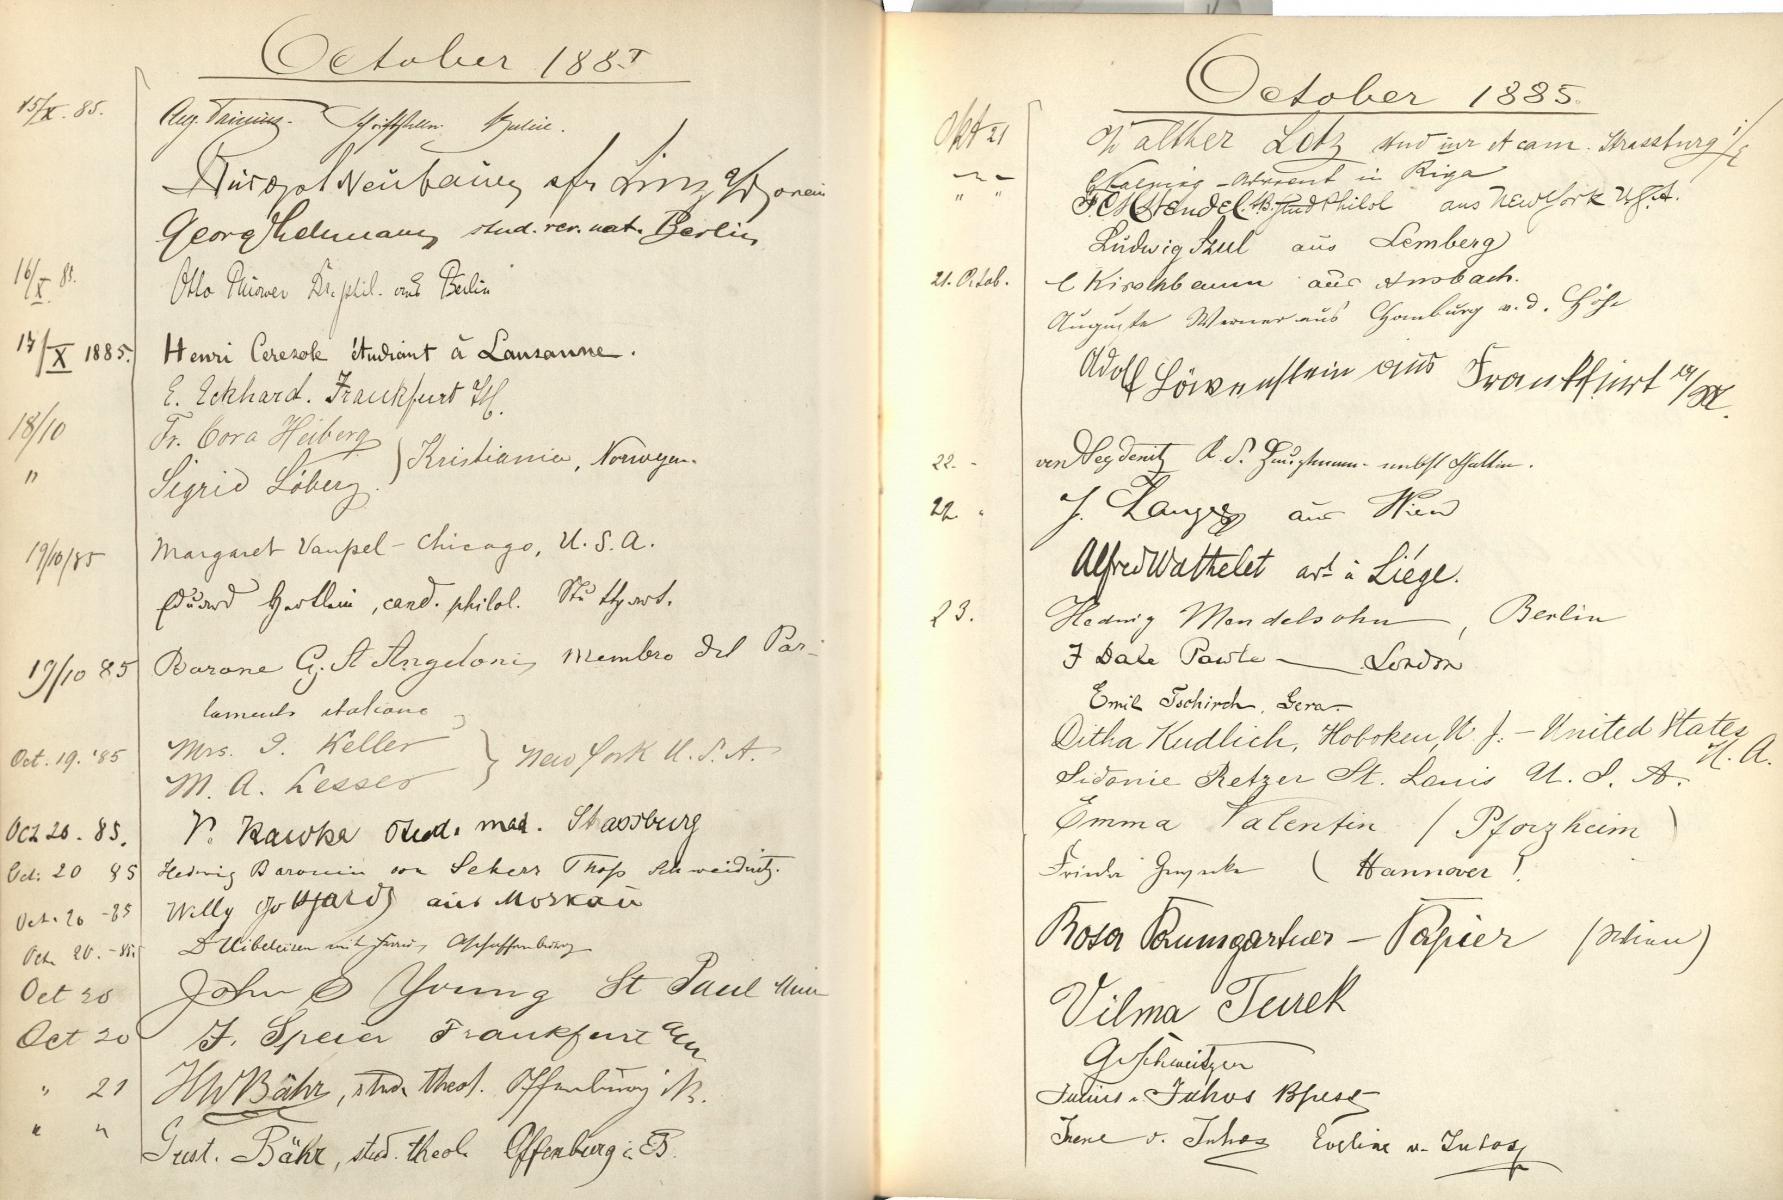 October 1885
15/X. 85. Aug. Trinius. Schriftsteller. Berlin.
Neubauer Linz a/D
Georg stud. rer. nat. Berlin
16/X 85. Otto Dr. phil. aus Berlin
17/X 1885. Henri Ceresole étudiant à Lausanne.
E. Eckhard. Frankfurt
18/10 Fr. Cora Heiberg
" Sigrid Löberg } Kristiania, Norwegen.
19/10/85 Margaret Vaupel - Chicago, U.S.A.
Eduard cand. philol. Stuttgart.
19/10 85 Barone G. St Angeloni, membro del Par-
lamento italiano
Oct. 19. '85 Mrs. I. Keller
M. A. Lesser } New York U.S.A.
Oct 20. 85. V. Kawka stud. med. Stassburg
Oct: 20 85 Hedwig Baronin von Schweidnitz.
Oct. 20 -85 Willy aus Moskau
Oct. 20. -85. Dr mit Aschaffenburg
Oct 20 John Young St Paul Minn
Oct 20 F. Speier Frankfurt a/M
" 21 HW Bähr, stud. theol. Offenburg
" " Gust. Bähr, stud. theol. Offenburg i. B.
October 1885.
Okt 21 Walther Lotz stud iur et cam. Strassburg i/E
in Riga
" " Philol aus New York U.S.A.
Ludwig aus Lemberg
21. Octob. E Kirschbaum aus Ansbach.
Auguste Werner aus Homburg v. d. Höhe
Adolf Löwenstein aus Frankfurt a/M.
22. - von Seydenitz K. S. Hauptmann nebst Gattin.
22 " J. Langer aus Wien
Alfred Wathelet art à Liége.
23. Hedwig Mendelsohn, Berlin
F Dale London
Emil Tschirch, Gera
Ditha Kudlich, Hoboken, N. J. - United States
N. A.
Sidonie Retzer St. Louis U. S. A.
Emma Valentin / Pforzheim
Frieda ( Hannover!
Rosa Baumgartner - Papier (Wien)
Vilma Turek
G. Schweitzer
Julius v. Juhos Bpest
Irene v. Juhos Eveline v. Juhos